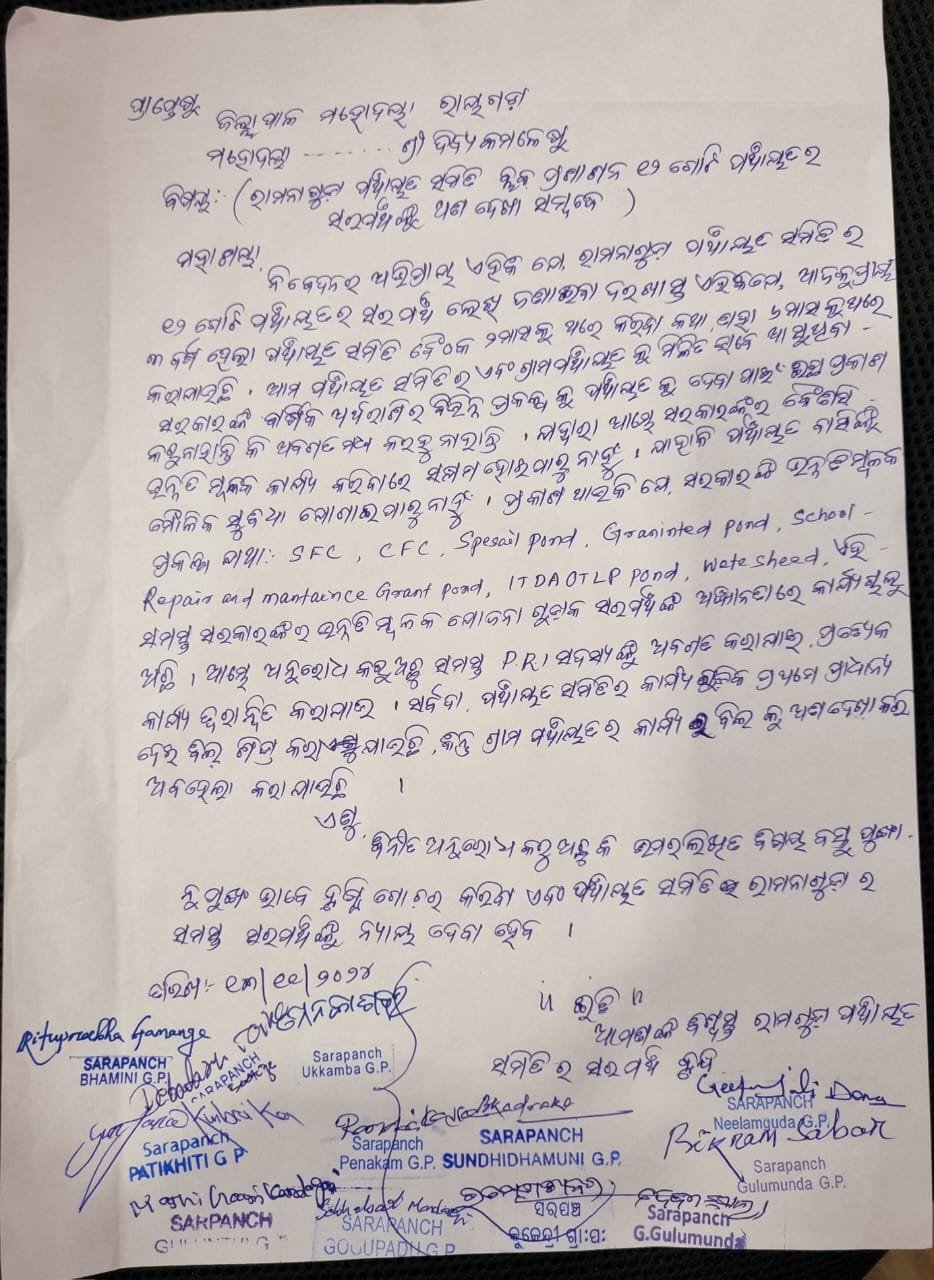 ପ୍ରାପ୍ତେଷୁ
ଜିଲ୍ଲାପାଳ ମହୋଦୟା ରାୟଗଡ଼ା
ମହୋଦୟା ........ ଶ୍ରୀ ଦିବ୍ୟ କମଳେଷୁ
ବିଷୟ:- (ରାମନାଗୁଡ଼ା ପଞ୍ଚାୟତ ସମିତି ବ୍ଲକ୍ ପ୍ରଶାଶନ ୧୨ ଗୋଟି ପଞ୍ଚାୟତର
ସରପଞ୍ଚଙ୍କୁ ଅଣ ଦେଖା ସମ୍ବନ୍ଧେ )
ମହାଶୟା,
ନିବେଦନର ଅଭିପ୍ରାୟ ଏହିକି ଯେ, ରାମନାଗୁଡ଼ା ପଞ୍ଚାୟତ ସମିତି ର
୧୨ ଗୋଟି ପଞ୍ଚାୟତର ସରପଞ୍ଚ ଲେଖି ଜଣାଇବା ଦରଖାସ୍ତ ଏହିକି ଯେ, ଆଜକୁ ପ୍ରାୟ
୩ ବର୍ଷ ହେଲା ପଞ୍ଚାୟତ ସମିତି ବୈଠକ ୨ମାସକୁ ଥରେ କରିବା କଥା, ଯାହା ୬ମାସକୁଥରେ
କରାଯାଉଛି । ଆମ ପଞ୍ଚାୟତ ସମିତିର ଏବଂ ଗ୍ରାମପଞ୍ଚାୟତ କୁ ମିଳିତ ଭାବେ ଆସୁଥିବା -
ସରକାରଙ୍କ ବାର୍ଷିକ ଅର୍ଥରାଶିର ବିଭିନ୍ନ ପ୍ରକଳ୍ପ କୁ ପଞ୍ଚାୟତ କୁ ଦେବା ପାଇଁ ପ୍ରକାଶ
କରୁନାହାନ୍ତି କି ଅବଗତ ମଧ୍ୟ କରହୁ ନାହାନ୍ତି । ଯାହାଦ୍ୱାରା ଆମ୍ଭେ ସରକାରଙ୍କର କୈଣସି -
ଉନ୍ନତି ମୂଳକ କାର୍ଯ୍ୟ କରିବାରେ ସକ୍ଷମ ହୋଇପାରୁ ନାହୁଁ । ଯାହାକି ପଞ୍ଚାୟତ ବାସିଙ୍କୁ
ମୌଳିକ ସୁବିଧା ଯୋଗାଇ ପାରୁନାହୁଁ । ପ୍ରକାଶ ଥାଉକି ଯେ, ସରକାରଙ୍କ ଉନ୍ନତିମୂଳକ
ପ୍ରକଳ୍ପ ଯଥା: SFC, CFC, Spesail Pond, Graninted Pond, School -
Repair and mantaince Grant Pond, ITDA OTLP Pond, Watesheed, ଏହି -
ସମସ୍ତ ସରକାରଙ୍କର ଉନ୍ନତି ମୂଳକ ଯୋଜନା ଗୁଡ଼ାକ ସରପଞ୍ଚଙ୍କ ଅଜ୍ଞାନତାରେ କାର୍ଯ୍ୟ
ଅଛି । ଆମ୍ଭେ ଅନୁରୋଧ କରୁଅଛୁ ସମସ୍ତ P.R.I ସଦସ୍ୟଙ୍କୁ ଅବଗତ କରାଯାଇ, ପ୍ରତ୍ୟେକ
କାର୍ଯ୍ୟ ତ୍ୱରାନ୍ୱିତ କରାଯାଉ । ସର୍ବଦା, ପଞ୍ଚାୟତ ସମିତିର କାର୍ଯ୍ୟ ପ୍ରଥମେ ପ୍ରାଧାନ୍ୟ
ଦେଇ ବିଲ୍ ଶୀଘ୍ର କରାଯାଉଛି, କିନ୍ତୁ ଗ୍ରାମ ପଞ୍ଚାୟତ ର କାର୍ଯ୍ୟ ର ବିଲ କୁ ଅଣ ଦେଖା କରି
ଅବହେଳା କରାଯାଉଛି ।
ଏଣୁ,
ବିନୀତ ଅନୁରୋଧ କରୁଅଛୁ କି ଉପରଲିଖିତ ବିଷୟ ବସ୍ତୁ ପୁଙ୍ଖା -
ନୁପୁଙ୍ଖ ଭାବେ ଦୃଷ୍ଟି ଗୋଚର କରିବା ଏବଂ ପଞ୍ଚାୟତ ସମିତି ରାମନାଗୁଡ଼ା ର
ସମସ୍ତ ସରପଞ୍ଚଙ୍କୁ ନ୍ୟାୟ ଦେବା ହେବ ।
ତାରିଖ:- ୧୩/୧୧/୨୦୨୪
॥ ଇତି ॥
ଆପଣଙ୍କ ବିଶ୍ୱସ୍ତ ରାମନାଗୁଡ଼ା ପଞ୍ଚାୟତ
ସମିତି ର ସରପଞ୍ଚ ବୃନ୍ଦ
Rituprabha Gamange
SARAPANCH
BHAMINI G.P.
SARAPANCH
Sarapanch
Ukkamba G.P.
Geetanjali
SARAPANCH
Neelamguda G.P.
Sarapanch
PATIKHITI G P.
Sarapanch
Penakam G.P.
SARAPANCH
SUNDHIDHAMUNI G.P.
Bikram Sabar
Sarapanch
Gulumunda G.P.
SARPANCH
SARAPANCH
GOGUPADU G.P
ସରପଞ୍ଚ
କୁଜେନ୍ଦ୍ରୀ ଗ୍ରା:ପ:
Sarapanch
G.Gulumunda